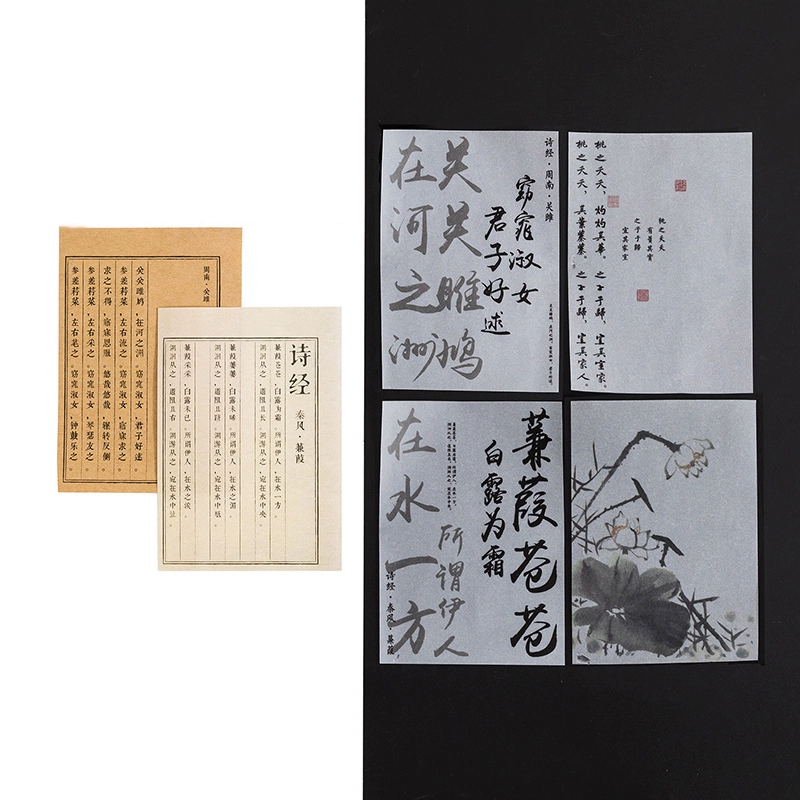 周南·关雎
关关雎鸠,在河之洲。窈窕淑女,君子好逑。
参差荇菜,左右流之。窈窕淑女,寤寐求之。
求之不得,寤寐思服。悠哉悠哉,辗转反侧。
参差荇菜,左右采之。窈窕淑女,琴瑟友之。
参差荇菜,左右芼之。窈窕淑女,钟鼓乐之。
诗经
秦风·蒹葭
蒹葭苍苍,白露为霜。所谓伊人,在水一方。
溯洄从之,道阻且长。溯游从之,宛在水中央。
蒹葭萋萋,白露未晞。所谓伊人,在水之湄。
溯洄从之,道阻且跻。溯游从之,宛在水中坻。
蒹葭采采,白露未已。所谓伊人,在水之涘。
溯洄从之,道阻且右。溯游从之,宛在水中沚。
诗经·周南·关雎
关关雎鸠
在河之洲
窈窕淑女
君子好逑
桃之夭夭,灼灼其華。之子于歸,宜其室家。
桃之夭夭,其葉蓁蓁。之子于歸,宜其家人。
桃之夭夭
有蕡其實
之子于歸
宜其家室
蒹葭苍苍
白露为霜
所谓伊人
在水一方
诗经·秦风·蒹葭